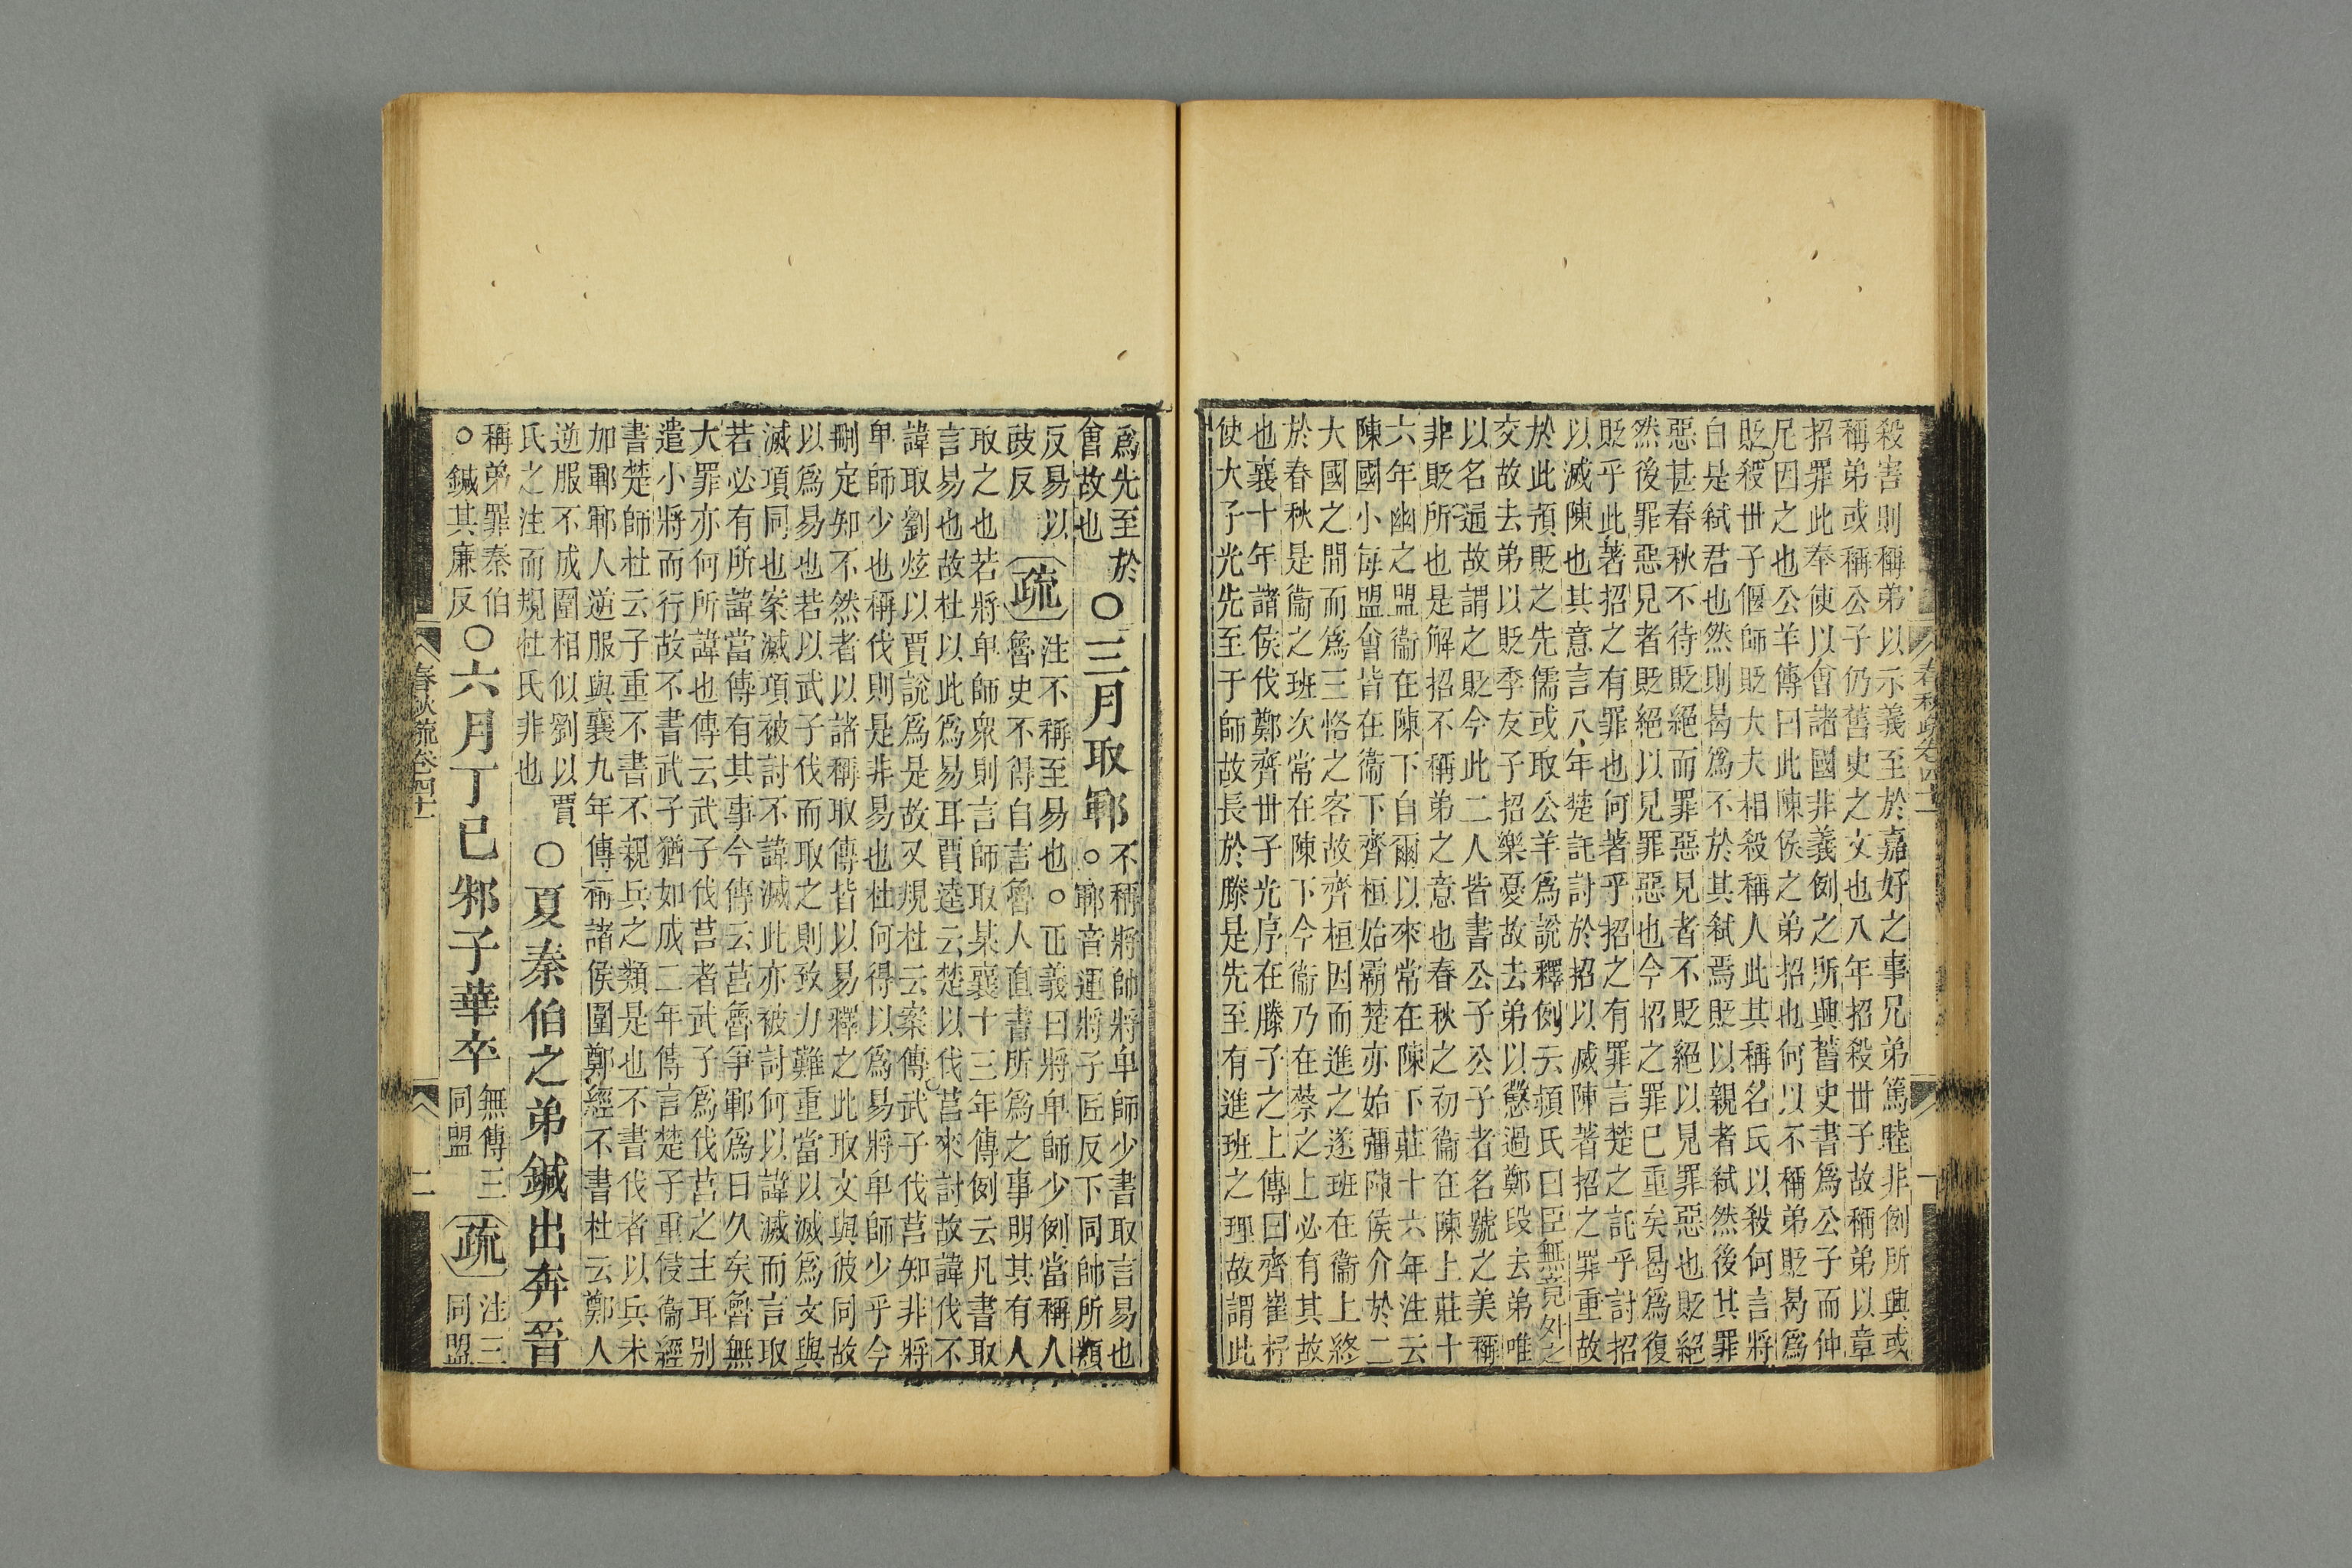 殺害則稱弟以示義至於嘉好之事兄弟篤睦非例所與或
稱弟或稱公子仍舊史之文也八年招殺世子故稱弟以章
招罪此奉使以會諸國非義例之所與舊史書爲公子而仲
尼因之也公羊傳曰此陳侯之弟招也何以不稱弟貶曷爲
貶殺世子偃師貶大夫相殺稱人此其稱名氏以殺何言將
自是弑君也然則曷爲不於其弑焉貶以親者弑然後其罪
惡甚春秋不待貶絕而罪惡見者不貶絕以見罪惡也貶絕
然後罪惡見者貶絕以見罪惡也今招之罪已重矣曷爲復
貶乎此著招之有罪也何著乎招之有罪言楚之託乎討招
以滅陳也其意言八年楚託討於招以滅陳著招之罪重故
於此預貶之先儒或取公羊爲說釋例云潁氏曰臣無竟外之
交故去弟以貶季友子招樂憂故去弟以懲過鄭段去弟唯
以名通故謂之貶今此二人皆書公子公子者名號之美稱
非貶所也是解招不稱弟之意也春秋之初衞在陳上莊十
六年幽之盟衞在陳下自爾以來常在陳下莊十六年注云
陳國小每盟會皆在衞下齊桓始霸楚亦始彊陳侯介於二
大國之間而爲三恪之客故齊桓因而進之遂班在衞上終
於春秋是衞之班次常在陳下今衞乃在蔡之上必有其故
也襄十年諸侯伐鄭齊世子光序在滕子之上傳曰齊崔杼
使大子光先至于師故長於滕是先至有進班之理故謂此
春秋疏卷四十一
一
爲先至於
會故也
○三月取鄆
不稱將帥將卑師少書取言易也
○鄆音運將子匠反下同帥所類
反易以
豉反
疏
注不稱至易也○正義曰將卑師少例當稱人
魯史不得自言魯人直書所爲之事明其有人
取之也若將卑師衆則言師取某襄十三年傳例云凡書取
言易也故杜以此爲易耳賈逵云楚以伐莒來討故諱伐不
諱取劉炫以賈說爲是故又規杜云案傳武子伐莒知非將
卑師少也稱伐則是非易也杜何得以爲易將卑師少乎今
刪定知不然者以諸稱取傳皆以易釋之此取文與彼同故
以爲易也若以武子伐而取之則致力難重當以滅爲文與
滅項同也案滅項被討不諱滅此亦被討何以諱滅而言取
若必有所諱當傳有其事今傳云莒魯爭鄆爲日久矣魯無
大罪亦何所諱也傳云武子伐莒者武子爲伐莒之主耳别
遣小將而行故不書武子猶如成二年傳言楚子重侵衞經
書楚師杜云子重不書不親兵之類是也不書伐者以兵未
加鄆鄆人逆服與襄九年傳稱諸侯圍鄭經不書杜云鄭人
逆服不成圍相似劉以賈
氏之注而規杜氏非也
○夏秦伯之弟鍼出奔晉
稱弟罪秦伯
○鍼其廉反
○六月丁巳邾子華卒
無傳三
同盟
疏
注三
同盟
春秋疏卷四十一
二